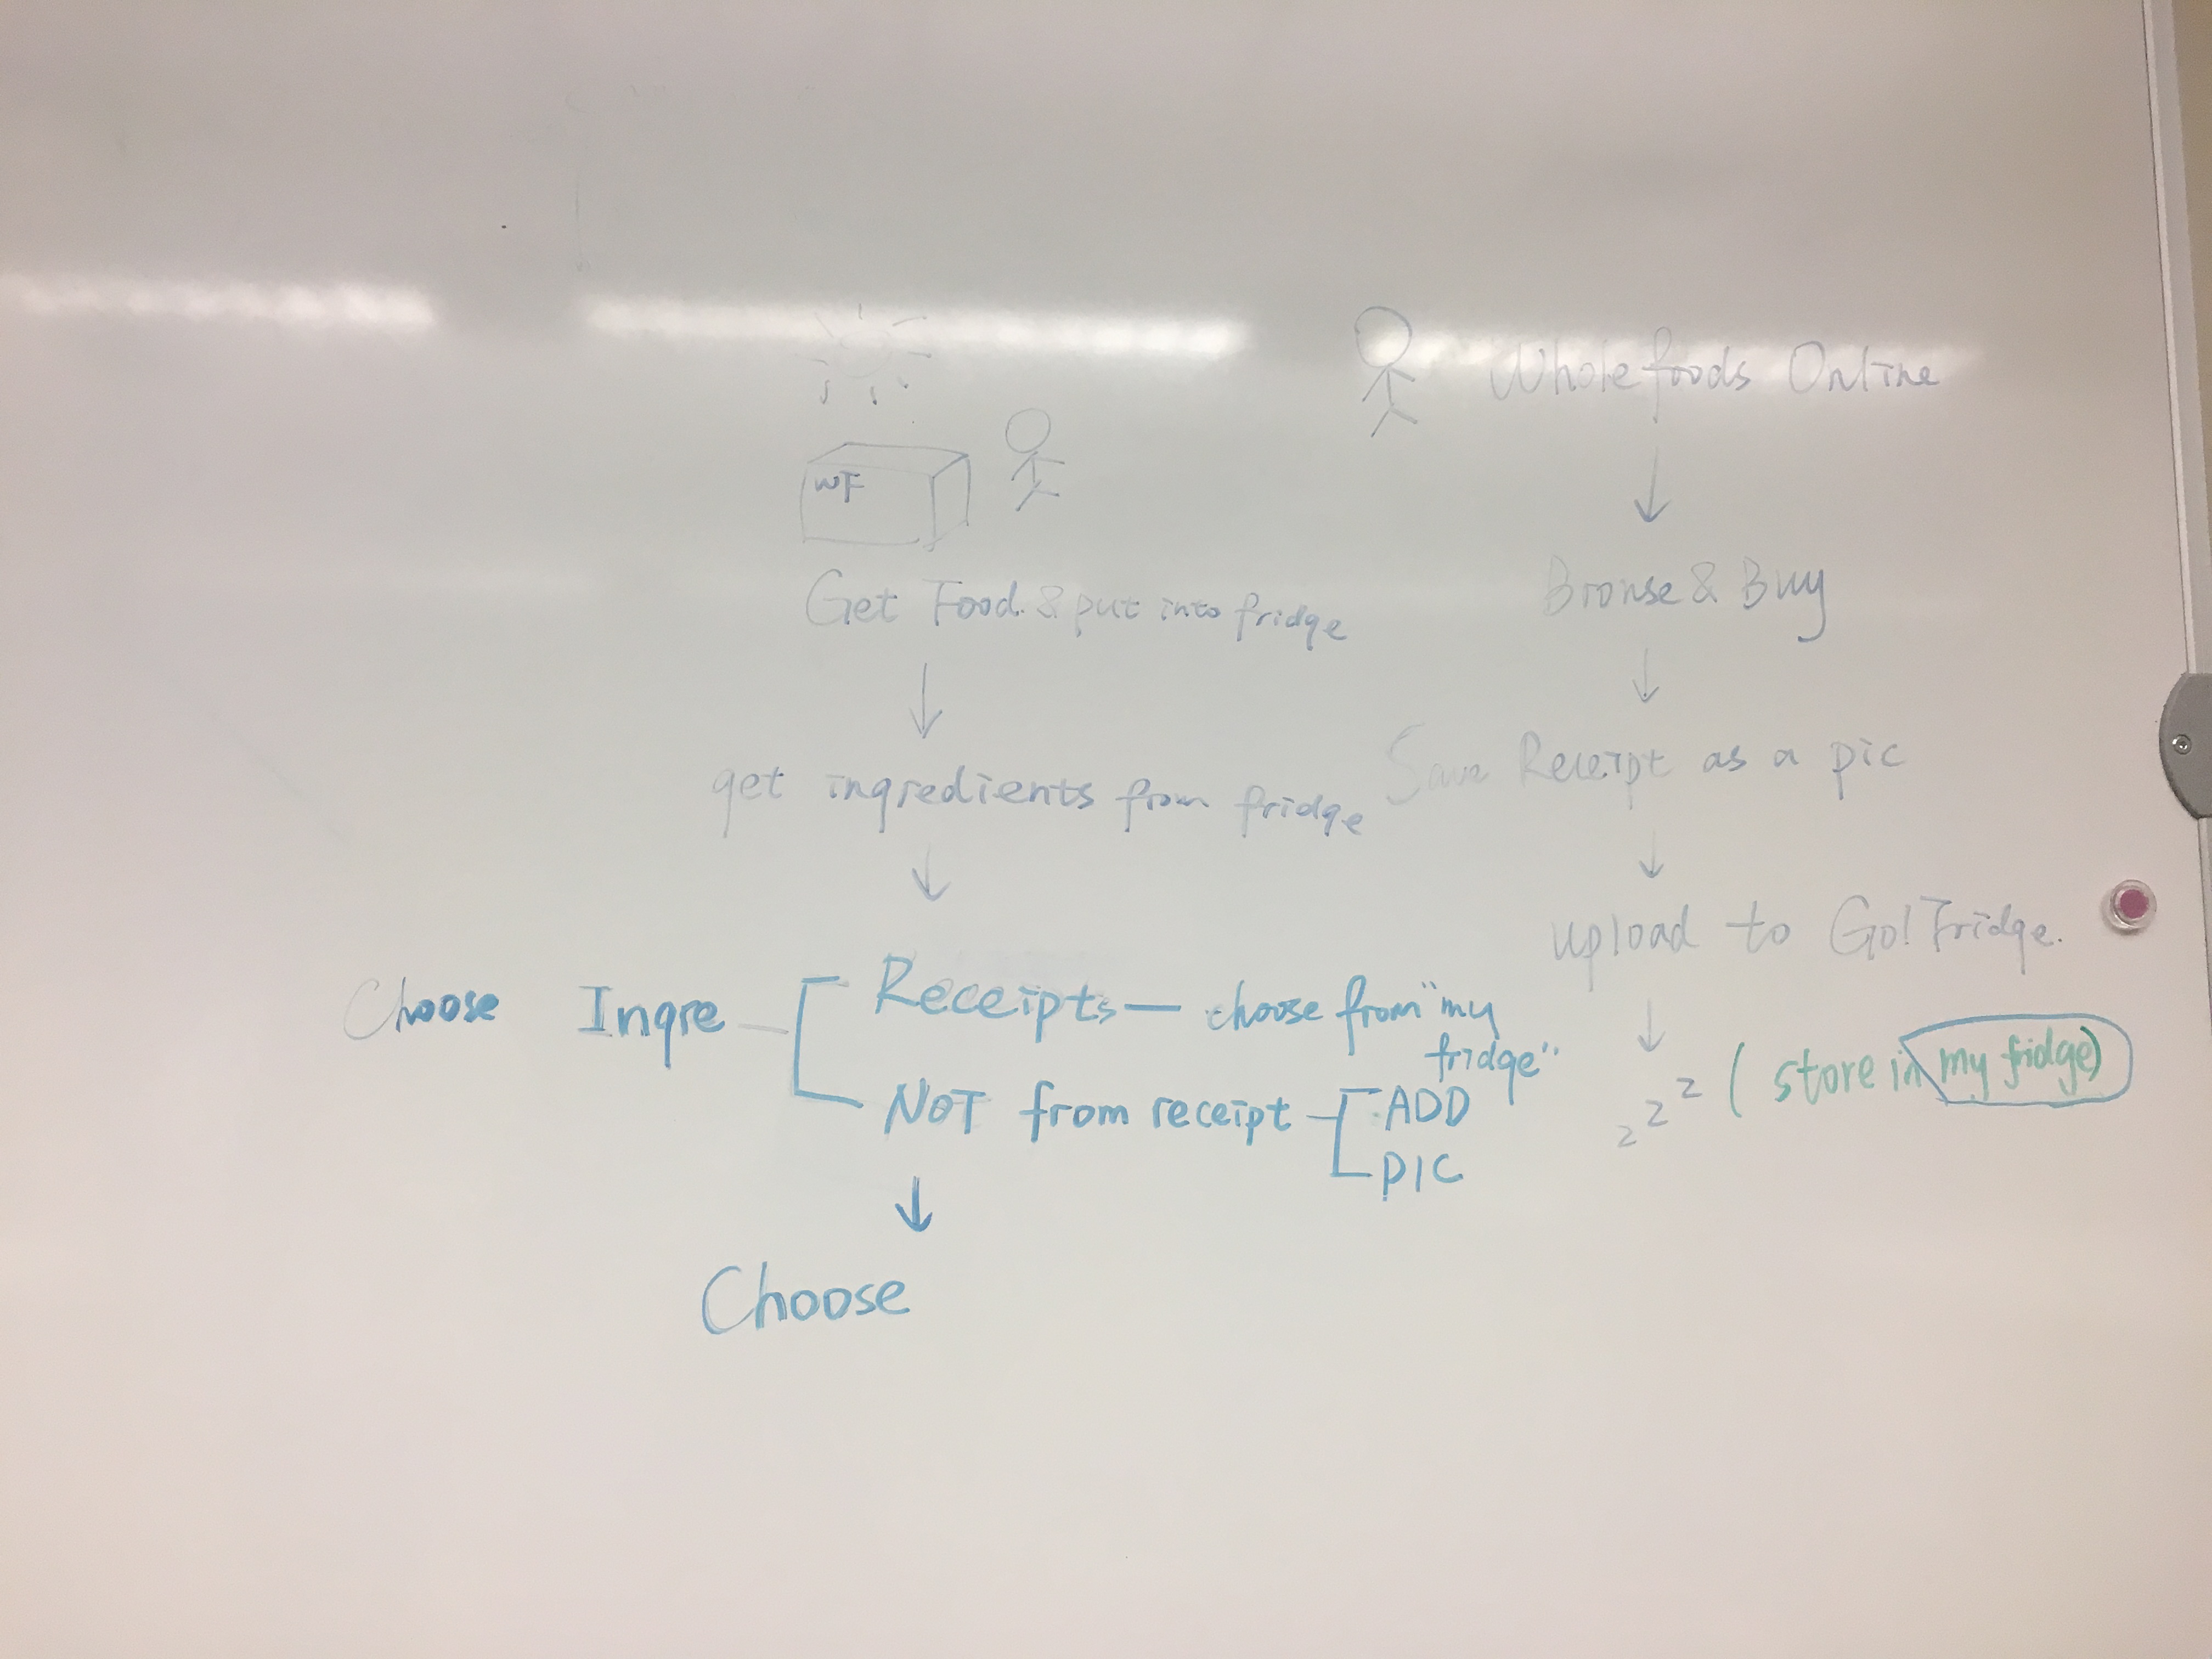 Wholefoods Online
WF
Browse & Buy
Get Food & put into fridge
Save Receipt as a pic
get ingredients from fridge
upload to Go! Fridge.
Choose Ingre
Receipts — choose from "my
fridge"
NOT from receipt
ADD
PIC
z z z ( store in my fridge)
Choose